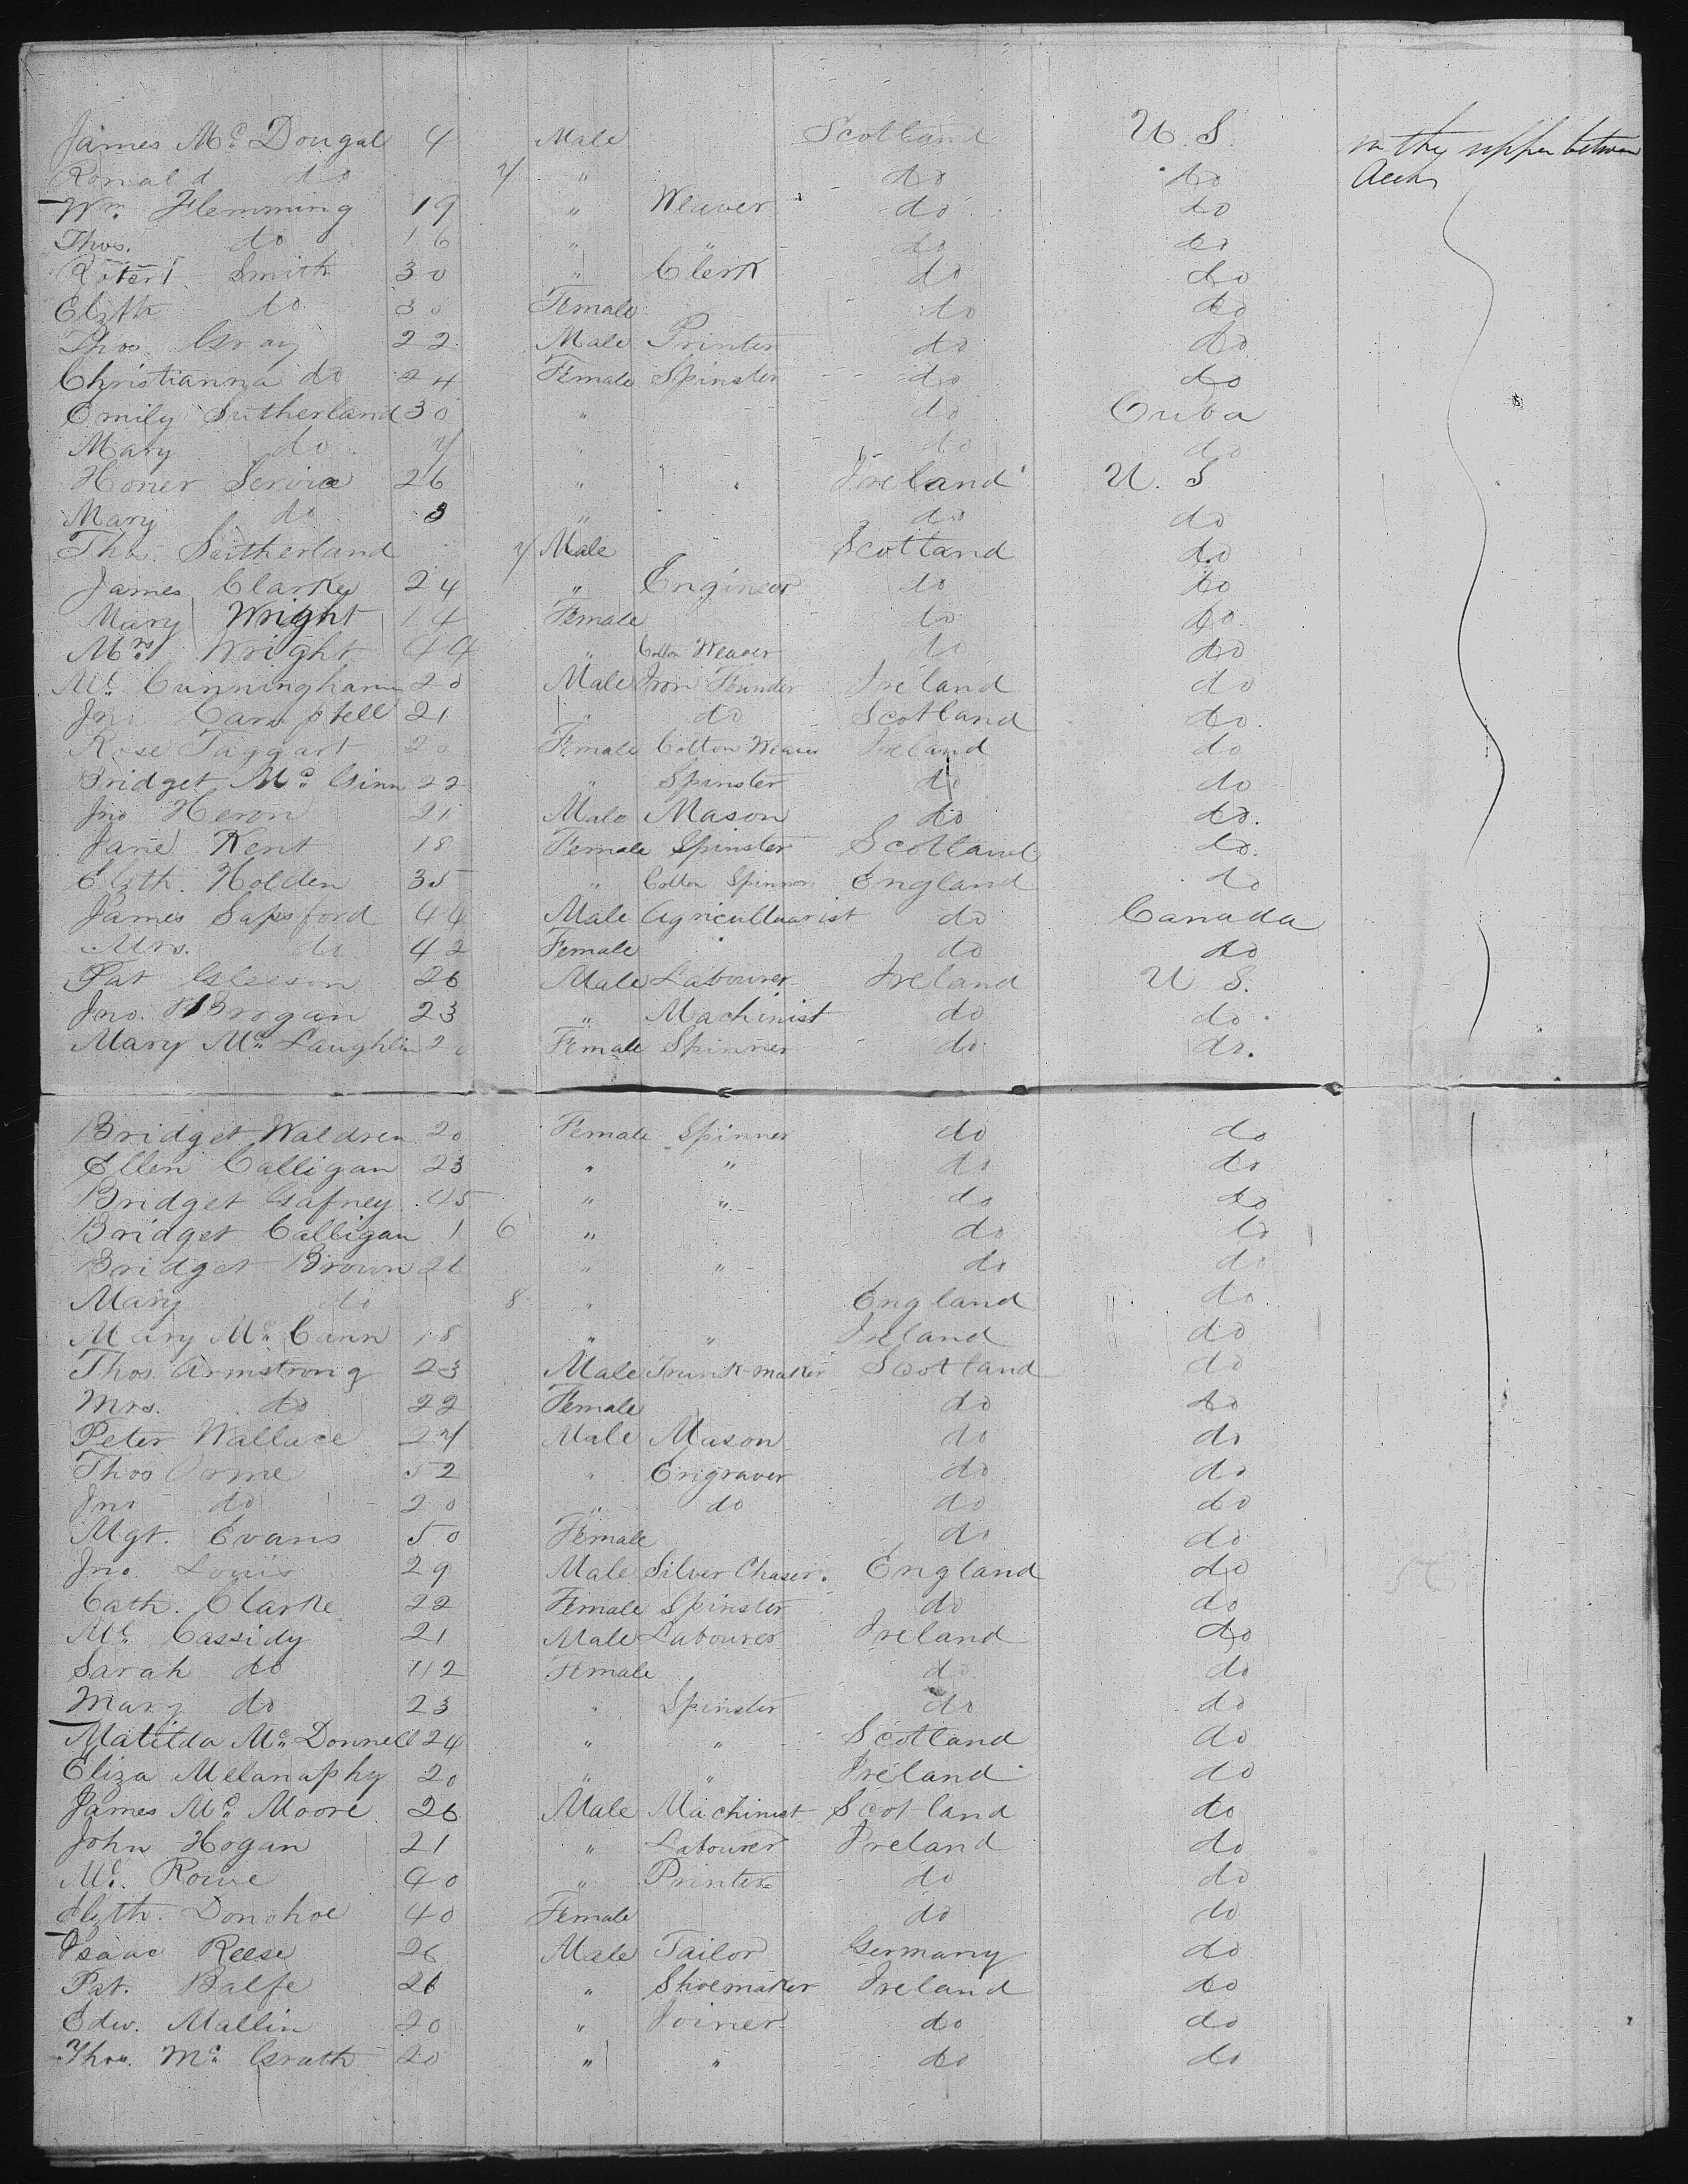 James Mc. Dougal 4 Male Scotland U. S. in the upper between
Ronald do 7 " do do decks
Wm. Flemming 19 " Weaver do do
Thos. do 16 " " do do
Robert Smith 30 " Clerk do do
Elzth do 30 Female do do
Thos. Gray 22 Male Printer do do
Christianna do 24 Female Spinster do do
Emily Sutherland 30 " do Cuba
Mary do 7 " do do
Honer Service 26 " Ireland U. S
Mary do 3 " do do
Thos. Sutherland 7 Male Scotland do
James Clarke 24 " Engineer do do
Mary Wright 14 Female do do
Mrs. Wright 44 " Cotton Weaver do do
Ml. Cunningham 20 Male Iron Founder Ireland do
Jno. Campbell 21 " do Scotland do
Rose Taggart 20 Female Cotton Weaver Ireland do
Bridget Mc. Ginn 22 " Spinster do do
Jno Heron 21 Male Mason do do.
Jane Kent 18 Female Spinster Scotland do.
Elzth. Holden 35 " Cotton Spinner England do
James Sapsford 44 Male Agricultuarist do Canada
Mrs. do 42 Female do do
Pat Gleeson 26 Male Labourer Ireland U S.
Jno. Brogan 23 " Machinist do do
Mary Mc. Laughlin 20 Female Spinner do do.
Bridget Waldren 20 Female Spinner do do
Ellen Calligan 23 " " do do
Bridget Gafney 45 " " do do
Bridget Calligan 1 6 " do do
Bridget Brown 26 " " do do
Mary do 8 " England do
Mary Mc. Cann 18 " " Ireland do
Thos. Armstrong 23 Male Trunk-maker Scotland do
Mrs. do 22 Female do do
Peter Wallace 27 Male Mason do do
Thos Orme 52 " Engraver do do
Jno do 20 " do do do
Mgt. Evans 50 Female do do
Jno. Louis 29 Male Silver Chaser. England do
Cath. Clarke 22 Female Spinster do do
Ml. Cassidy 21 Male Labourer Ireland do
Sarah do 42 Female do do
Mary do 23 " Spinster do do
Matilda Mc. Donnell 24 " " Scotland do
Eliza Melanaphy 20 " " Ireland do
James Mc. Moore 26 Male Machinist Scotland do
John Hogan 21 " Labourer Ireland do
Ml. Rowe 40 " Printer do do
Elzth. Donohoe 40 Female do do
Isaac Reese 26 Male Tailor Germany do
Pat. Balfe 26 " Shoemaker Ireland do
Edw. Mallin 20 " Joiner do do
Thos. Mc. Grath 20 " " do do